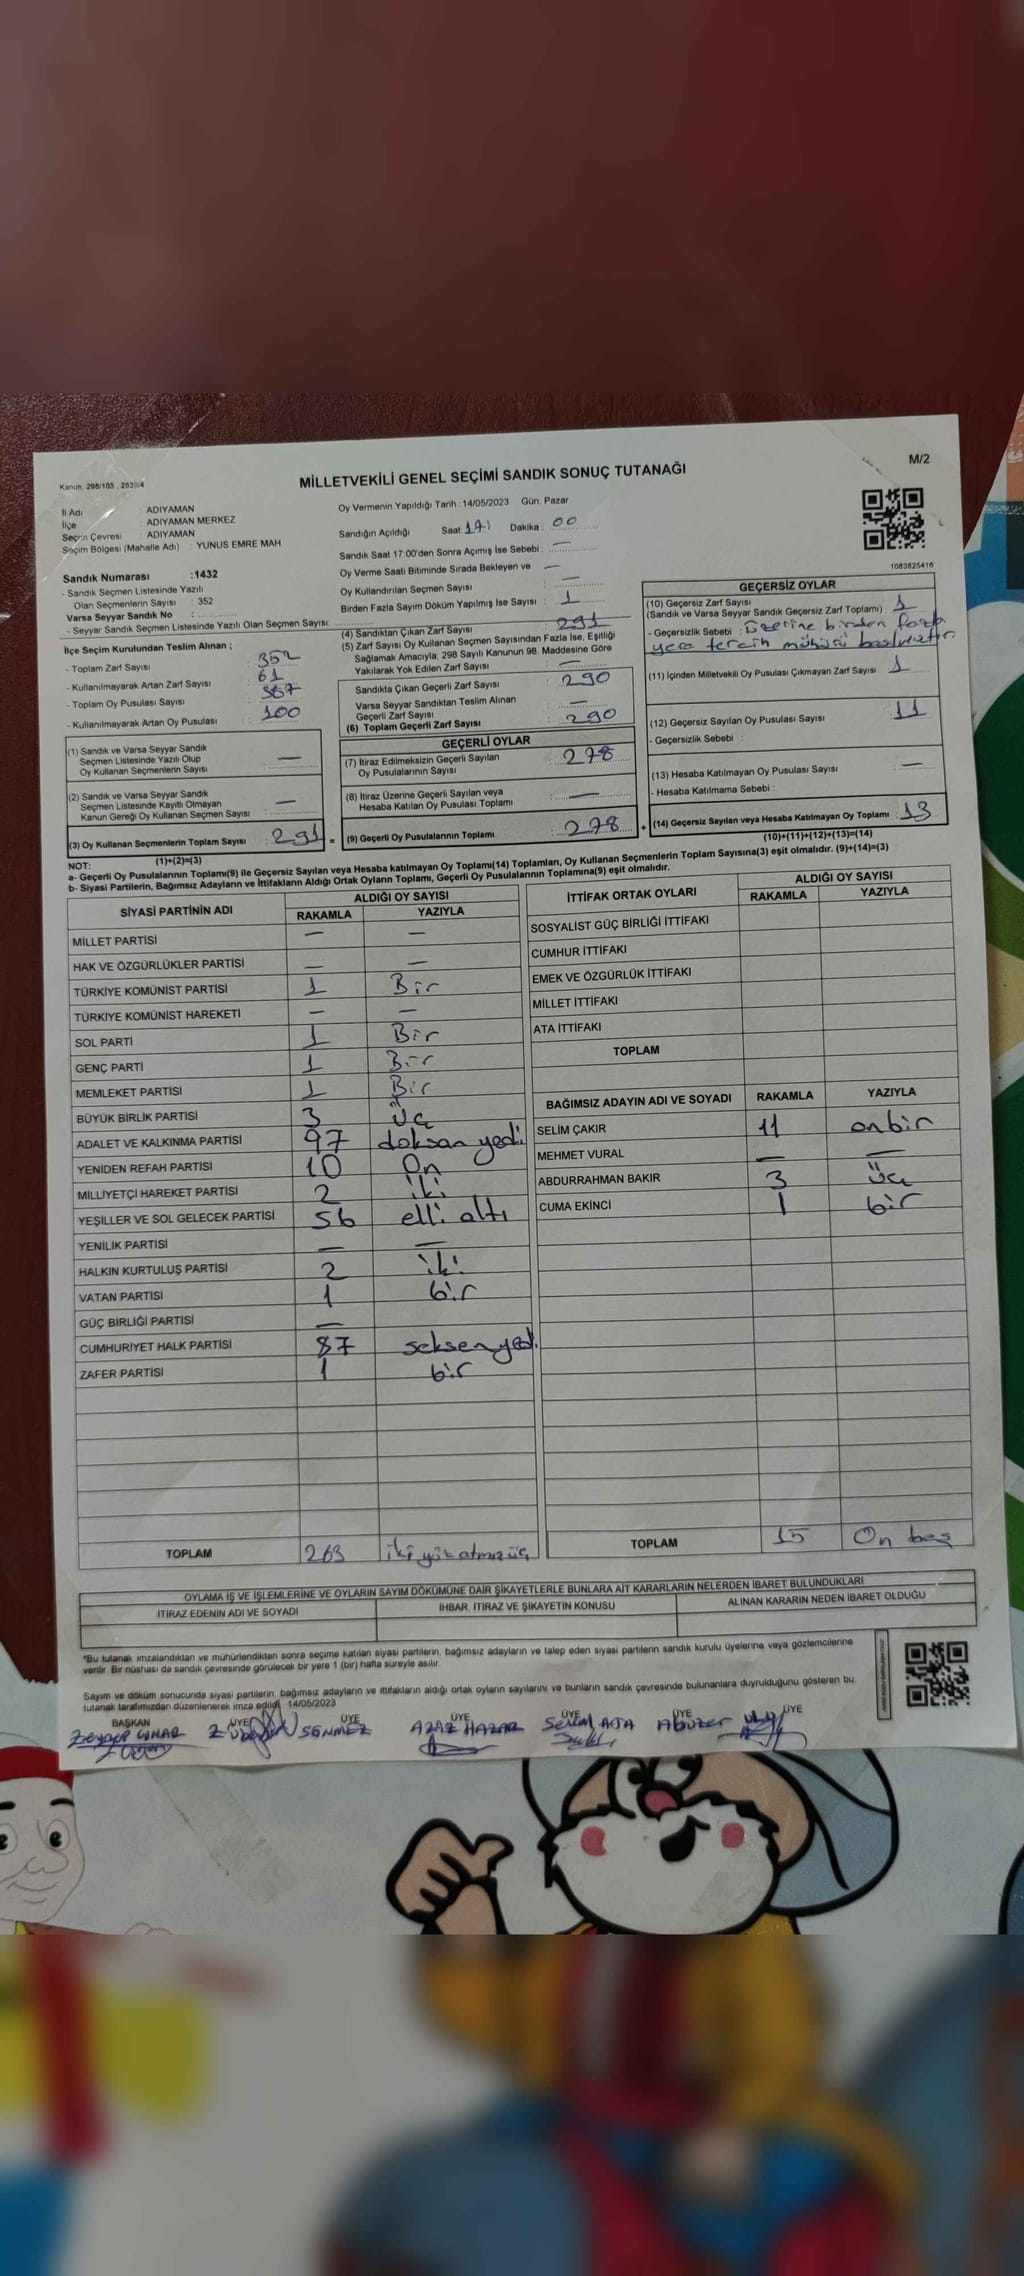 Kanun: 298/105 , 2839/4
MİLLETVEKİLİ GENEL SEÇİMİ SANDIK SONUÇ TUTANAĞI
M/2
İl Adı : ADIYAMAN
İlçe : ADIYAMAN MERKEZ
Seçim Çevresi : ADIYAMAN
Seçim Bölgesi (Mahalle Adı) : YUNUS EMRE MAH.
Oy Vermenin Yapıldığı Tarih :14/05/2023 Gün: Pazar
Sandığın Açıldığı Saat Dakika : 00
Sandık Saat 17:00'den Sonra Açımış İse Sebebi : —
Oy Verme Saati Bitiminde Sırada Bekleyen ve
Oy Kullandırılan Seçmen Sayısı : —
Birden Fazla Sayım Döküm Yapılmış İse Sayısı : 1
1063625416
Sandık Numarası :1432
- Sandık Seçmen Listesinde Yazılı
Olan Seçmenlerin Sayısı : 352
Varsa Seyyar Sandık No :
- Seyyar Sandık Seçmen Listesinde Yazılı Olan Seçmen Sayısı:
İlçe Seçim Kurulundan Teslim Alınan ;
- Toplam Zarf Sayısı : 352
- Kullanılmayarak Artan Zarf Sayısı : 61
- Toplam Oy Pusulası Sayısı : 387
- Kullanılmayarak Artan Oy Pusulası : 100
(1) Sandık ve Varsa Seyyar Sandık
Seçmen Listesinde Yazılı Olup
Oy Kullanan Seçmenlerin Sayısı : —
(2) Sandık ve Varsa Seyyar Sandık
Seçmen Listesinde Kayıtlı Olmayan
Kanun Gereği Oy Kullanan Seçmen Sayısı : —
(3) Oy Kullanan Seçmenlerin Toplam Sayısı : 291
(1)+(2)=(3)
(4) Sandıktan Çıkan Zarf Sayısı : 291
(5) Zarf Sayısı Oy Kullanan Seçmen Sayısından Fazla İse, Eşitliği
Sağlamak Amacıyla, 298 Sayılı Kanunun 98. Maddesine Göre
Yakılarak Yok Edilen Zarf Sayısı : —
Sandıkta Çıkan Geçerli Zarf Sayısı : 290
Varsa Seyyar Sandıktan Teslim Alınan
Geçerli Zarf Sayısı : —
(6) Toplam Geçerli Zarf Sayısı : 290
GEÇERLİ OYLAR
(7) İtiraz Edilmeksizin Geçerli Sayılan
Oy Pusulalarının Sayısı : 278
(8) İtiraz Üzerine Geçerli Sayılan veya
Hesaba Katılan Oy Pusulası Toplamı : —
(9) Geçerli Oy Pusulalarının Toplamı : 278
GEÇERSİZ OYLAR
(10) Geçersiz Zarf Sayısı
(Sandık ve Varsa Seyyar Sandık Geçersiz Zarf Toplamı) : 1
- Geçersizlik Sebebi : üzerine birden fazla
yere tercih mühürü basılmıştır.
(11) İçinden Milletvekili Oy Pusulası Çıkmayan Zarf Sayısı : 1
(12) Geçersiz Sayılan Oy Pusulası Sayısı : 11
- Geçersizlik Sebebi :
(13) Hesaba Katılmayan Oy Pusulası Sayısı : —
- Hesaba Katılmama Sebebi :
(14) Geçersiz Sayılan veya Hesaba Katılmayan Oy Toplamı : 13
(10)+(11)+(12)+(13)=(14)
NOT:
a- Geçerli Oy Pusulalarının Toplamı(9) ile Geçersiz Sayılan veya Hesaba katılmayan Oy Toplamı(14) Toplamları, Oy Kullanan Seçmenlerin Toplam Sayısına(3) eşit olmalıdır. (9)+(14)=(3)
b- Siyasi Partilerin, Bağımsız Adayların ve İttifakların Aldığı Ortak Oyların Toplamı, Geçerli Oy Pusulalarının Toplamına(9) eşit olmalıdır.
SİYASİ PARTİNİN ADI ALDIĞI OY SAYISI
RAKAMLA YAZIYLA
MİLLET PARTİSİ — —
HAK VE ÖZGÜRLÜKLER PARTİSİ — —
TÜRKİYE KOMÜNİST PARTİSİ 1 Bir
TÜRKİYE KOMÜNİST HAREKETİ — —
SOL PARTİ 1 Bir
GENÇ PARTİ 1 Bir
MEMLEKET PARTİSİ 1 Bir
BÜYÜK BİRLİK PARTİSİ 3 Üç
ADALET VE KALKINMA PARTİSİ 97 doksan yedi
YENİDEN REFAH PARTİSİ 10 On
MİLLİYETÇİ HAREKET PARTİSİ 2 iki
YEŞİLLER VE SOL GELECEK PARTİSİ 56 elli altı
YENİLİK PARTİSİ — —
HALKIN KURTULUŞ PARTİSİ 2 iki
VATAN PARTİSİ 1 bir
GÜÇ BİRLİĞİ PARTİSİ —
CUMHURİYET HALK PARTİSİ 87 seksen yedi
ZAFER PARTİSİ 1 bir
TOPLAM 263 iki yüz atmış üç
İTTİFAK ORTAK OYLARI ALDIĞI OY SAYISI
RAKAMLA YAZIYLA
SOSYALİST GÜÇ BİRLİĞİ İTTİFAKI
CUMHUR İTTİFAKI
EMEK VE ÖZGÜRLÜK İTTİFAKI
MİLLET İTTİFAKI
ATA İTTİFAKI
TOPLAM
BAĞIMSIZ ADAYIN ADI VE SOYADI RAKAMLA YAZIYLA
SELİM ÇAKIR 11 onbir
MEHMET VURAL — —
ABDURRAHMAN BAKIR 3 üç
CUMA EKİNCİ 1 bir
TOPLAM 15 On beş
OYLAMA İŞ VE İŞLEMLERİNE VE OYLARIN SAYIM DÖKÜMÜNE DAİR ŞİKAYETLERLE BUNLARA AİT KARARLARIN NELERDEN İBARET BULUNDUKLARI
İTİRAZ EDENİN ADI VE SOYADI İHBAR, İTİRAZ VE ŞİKAYETİN KONUSU ALINAN KARARIN NEDEN İBARET OLDUĞU
*Bu tutanak imzalandıktan ve mühürlendikten sonra seçime katılan siyasi partilerin, bağımsız adayların ve talep eden siyasi partilerin sandık kurulu üyelerine veya gözlemcilerine
verilir. Bir nüshası da sandık çevresinde görülecek bir yere 1 (bir) hafta süreyle asılır.
Sayım ve döküm sonucunda siyasi partilerin, bağımsız adayların ve ittifakların aldığı ortak oyların sayılarını ve bunların sandık çevresinde bulunanlara duyrulduğunu gösteren bu
tutanak tarafımızdan düzenlenerek imza edildi. 14/05/2023
BAŞKAN ÜYE ÜYE ÜYE ÜYE ÜYE ÜYE
Zeynep ÇINAR SÖNMEZ AZAZ HAZAR Abuzer